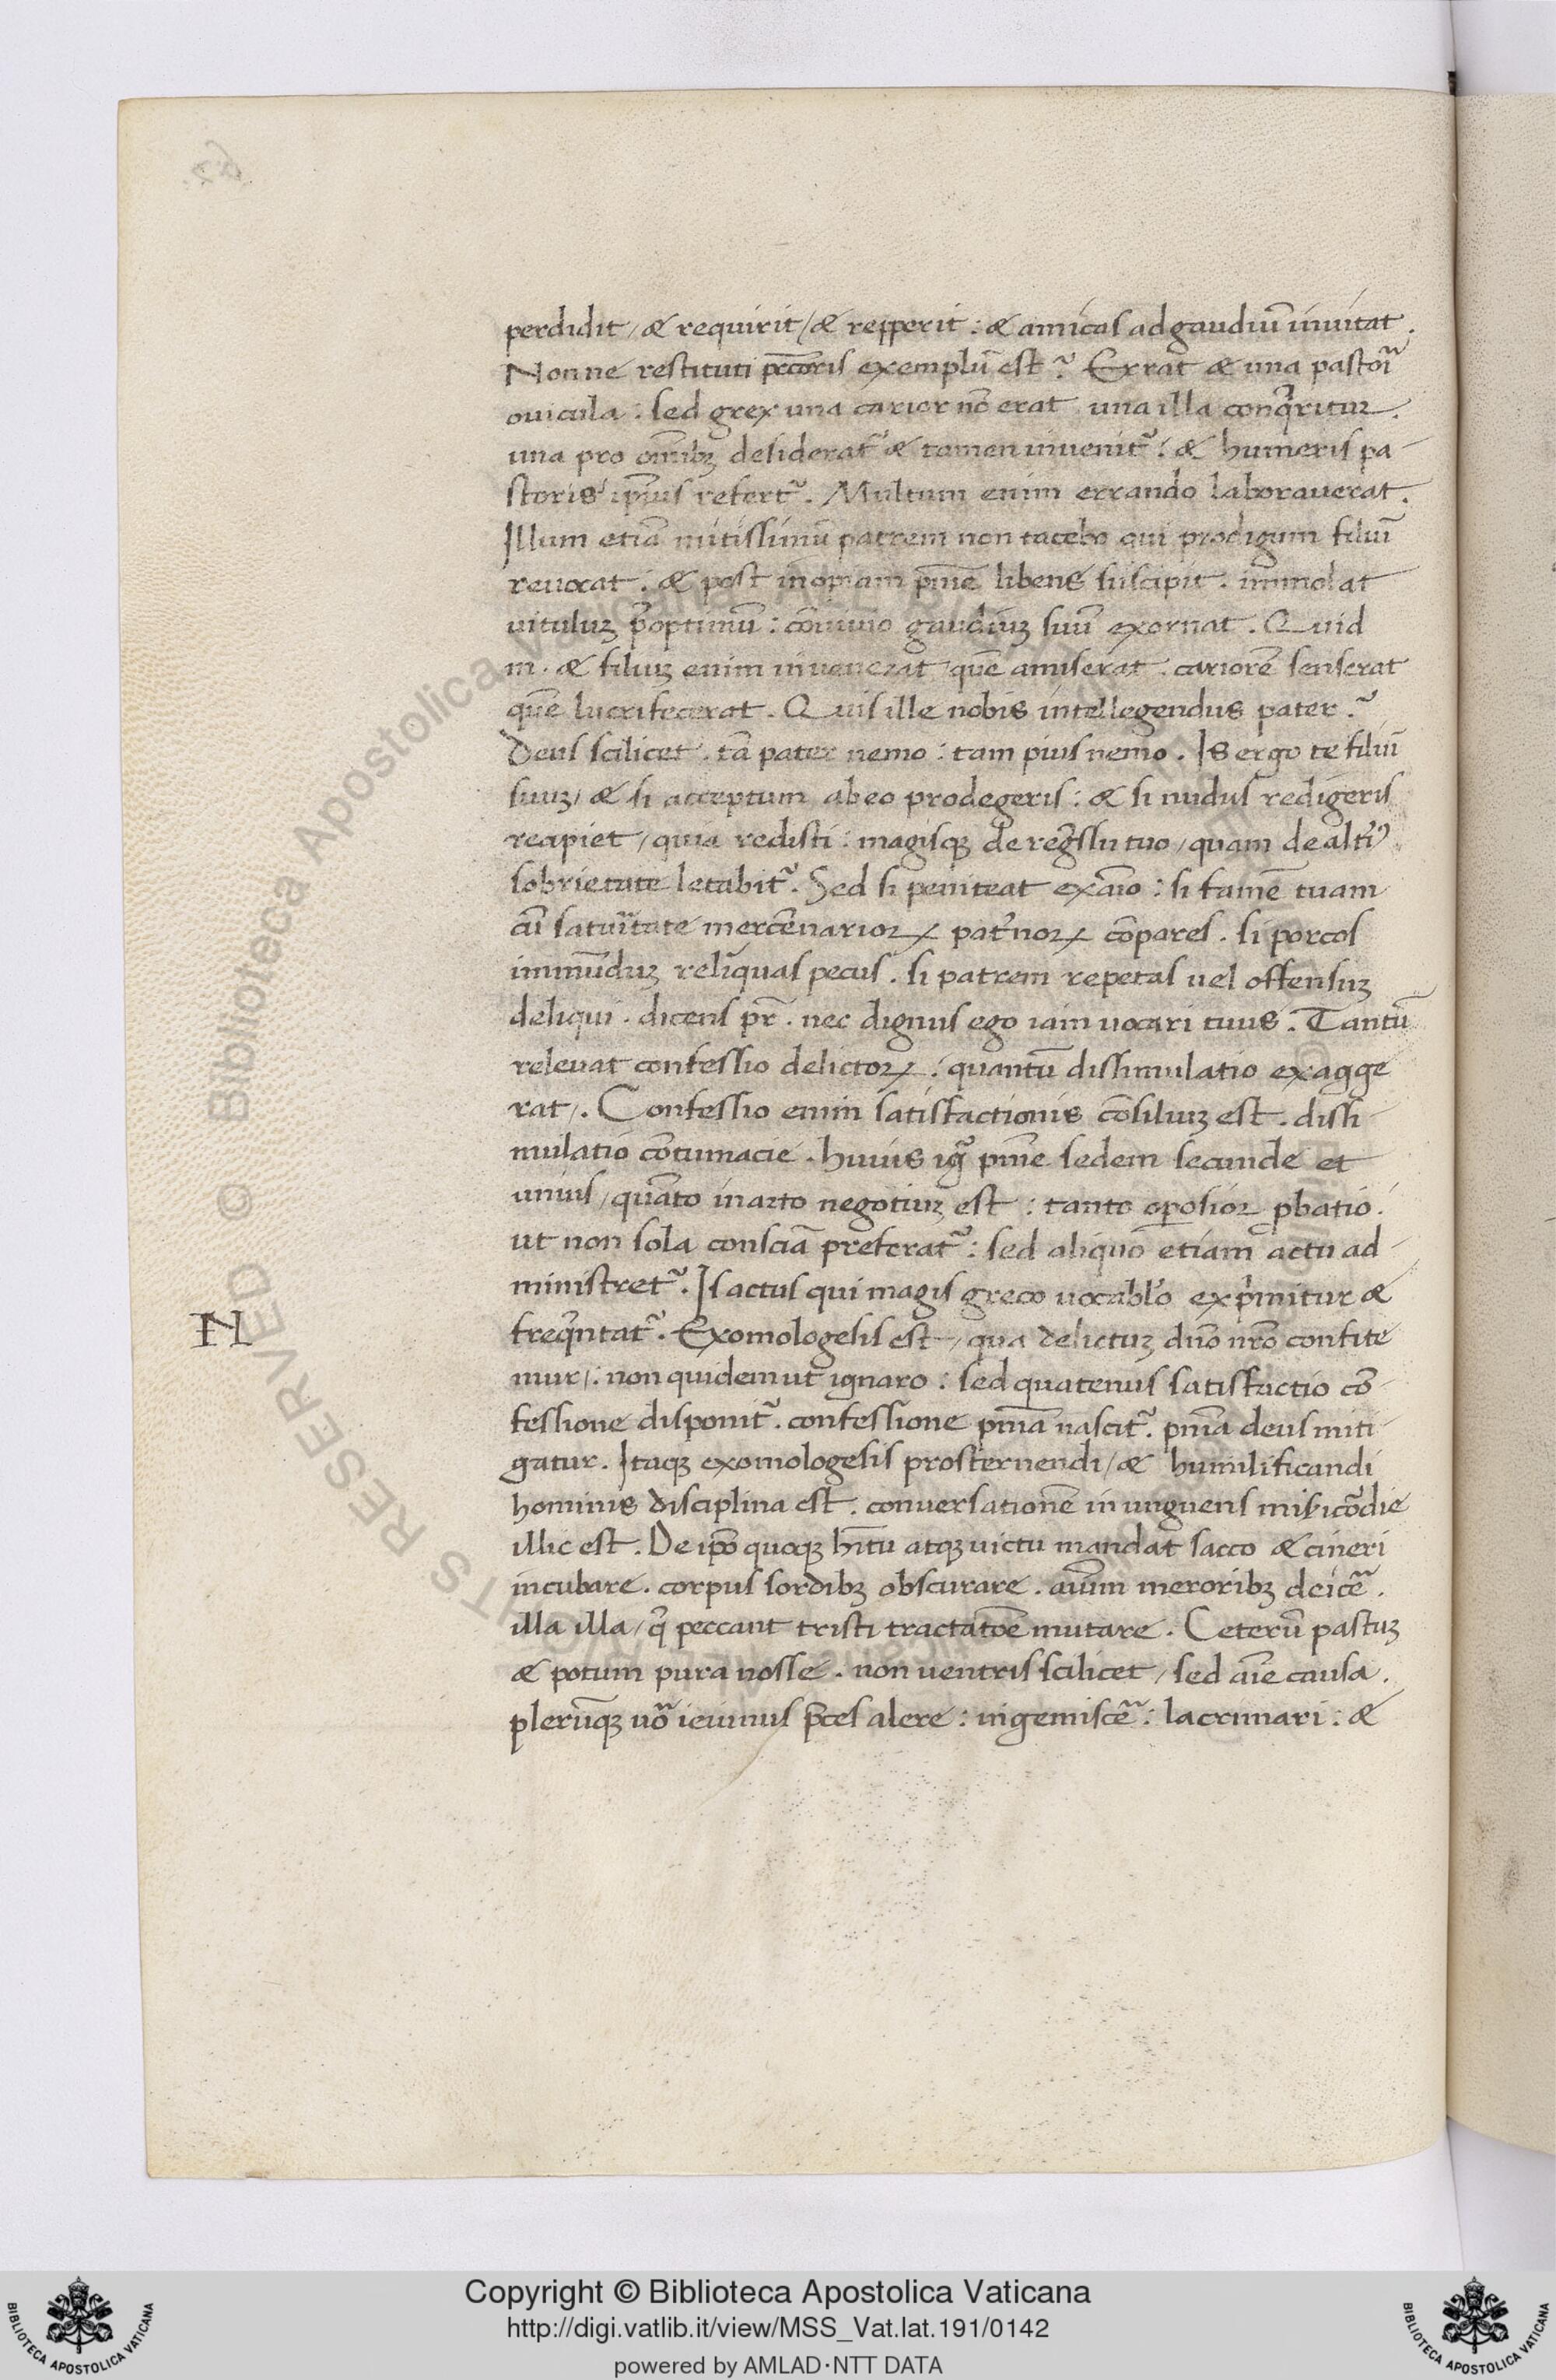 perdidit / & requirit / & repperit : & amicas ad gaudiū inuitat .
Nonne restituti pccoris exemplū est ? Errat & una pastoris
ouicula : sed grex una carior nō erat una illa conqritur .
una pro omībꝫ desiderat᷑ & tamen invenit᷑ : & humeris pa-
storis ipsius refert᷑ . Multum enim errando laboraverat .
Illum etiā mitissimū patrem non tacebo qui prodigum filiū
revocat . & post inopiam pnīe libens suscipit . immolat
vituluꝫ p̄optimū : cōvivio gaudiuꝫ suū exornat . Quid
ni . & filiuꝫ enim invenerat quē amiserat . cariorē senserat
quē lucrifecerat . Quis ille nobis intellegendus pater ?
Deus scilicet . tā pater nemo : tam pius nemo . Is ergo te filiū
suuꝫ / & si acceptum ab eo prodegeris : & si nudus redigeris
recipiet / quia redisti : magisqꝫ de regssu tuo / quam de alti᷒
sobrietate letabit᷑ . Sed si peniteat ex aīo : si famē tuam
cū saturitate mercēnarioꝝ pat̓noꝝ cōpares . si porcos
immūduꝫ relīquas pecus . si patrem repetas vel offensuꝫ
deliqui . dicens pr̄ . nec dignus ego iam vocari tuus . Tantū
relevat confessio delictoꝝ : quantū dissimulatio exagge
rat / . Confessio enim satisfactionis cōsiliuꝫ est . dissi-
mulatio cōtumacie . huius igr̄ pnīe sedem secunde et
unius / quāto in arto negotiuꝫ est : tanto oꝑosior ꝓbatio .
ut non sola consciā preferat᷑ : sed aliquo etiam actu ad-
ministret᷑ . Is actus qui magis greco vocablo exp̄mitur &
N
freqn̄tat᷑ . Exomologesis est / qua delictuꝫ dn̄o nr̄o confite
mur / . non quidem ut ignaro : sed quatenus satisfactio cō-
fessione disponit᷑ . confessione pnīa nascit᷑ . pnīa deus miti-
gatur . Itaqꝫ exomologesis prosternendi / & humilificandi
hominis disciplina est . conversationē in unguens misicōdie
illic est . De ipō quoqꝫ hītu atqꝫ victu mandat sacco & cineri
incubare . corpus sordibꝫ obscurare . aīum meroribꝫ deicē .
illa illa / q̄ peccant tristi tractatōe mutare . Ceterū pastuꝫ
& potum pura nosse . non ventris scilicet / sed aīe causa .
plerūqꝫ vō ieiunus p̄ces alere : ingemiscē : lacrimari : &
Copyright © Biblioteca Apostolica Vaticana
http://digi.vatlib.it/view/MSS_Vat.lat.191/0142
powered by AMLAD·NTT DATA